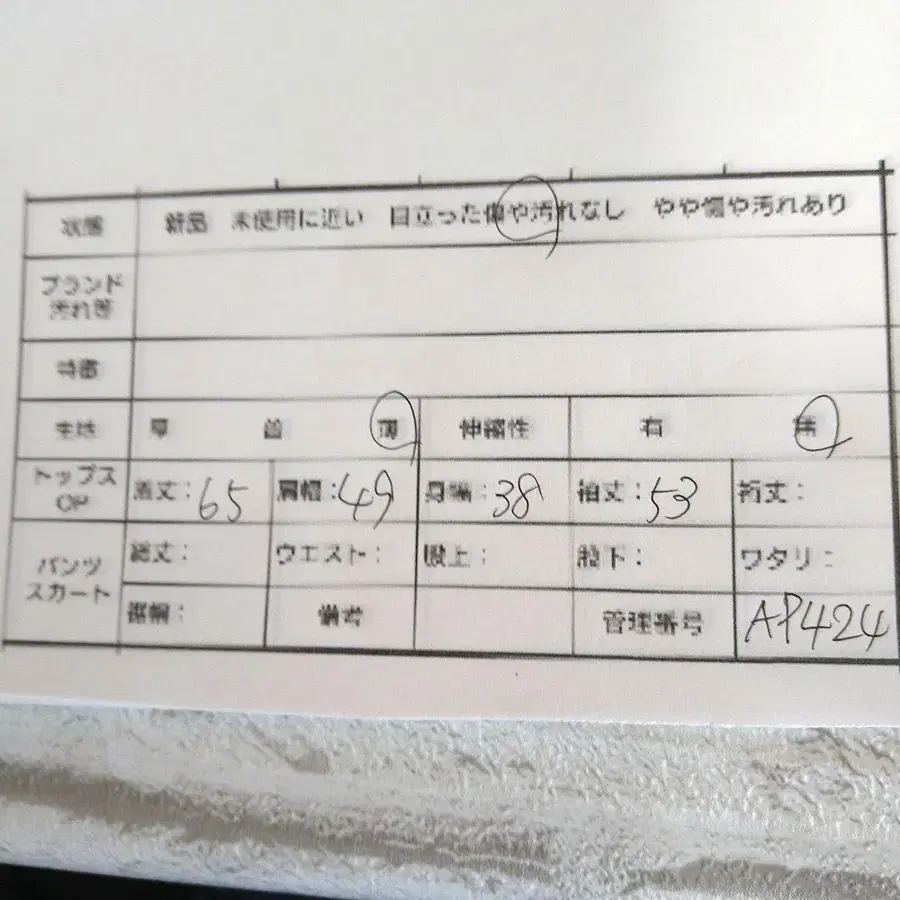 状態 新品 未使用に近い 目立った傷や汚れなし やや傷や汚れあり
ブランド
汚れ等
特徴
生地 厚 普 薄 伸縮性 有 無
トップス
OP
着丈：65 肩幅：49 身幅：38 袖丈：53 裄丈：
パンツ
スカート
総丈： ウエスト： 股上： 股下： ワタリ：
裾幅： 備考 管理番号 AP424